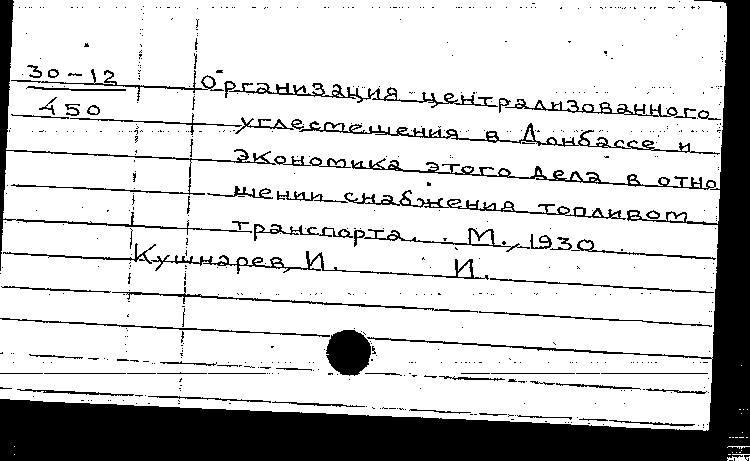 30-12
450
Организация централизованного
углесмешения в Донбассе и
экономика этого дела в отно
шении снабжения топливом
транспорта. . М., 1930
Кушнарев, И. И.